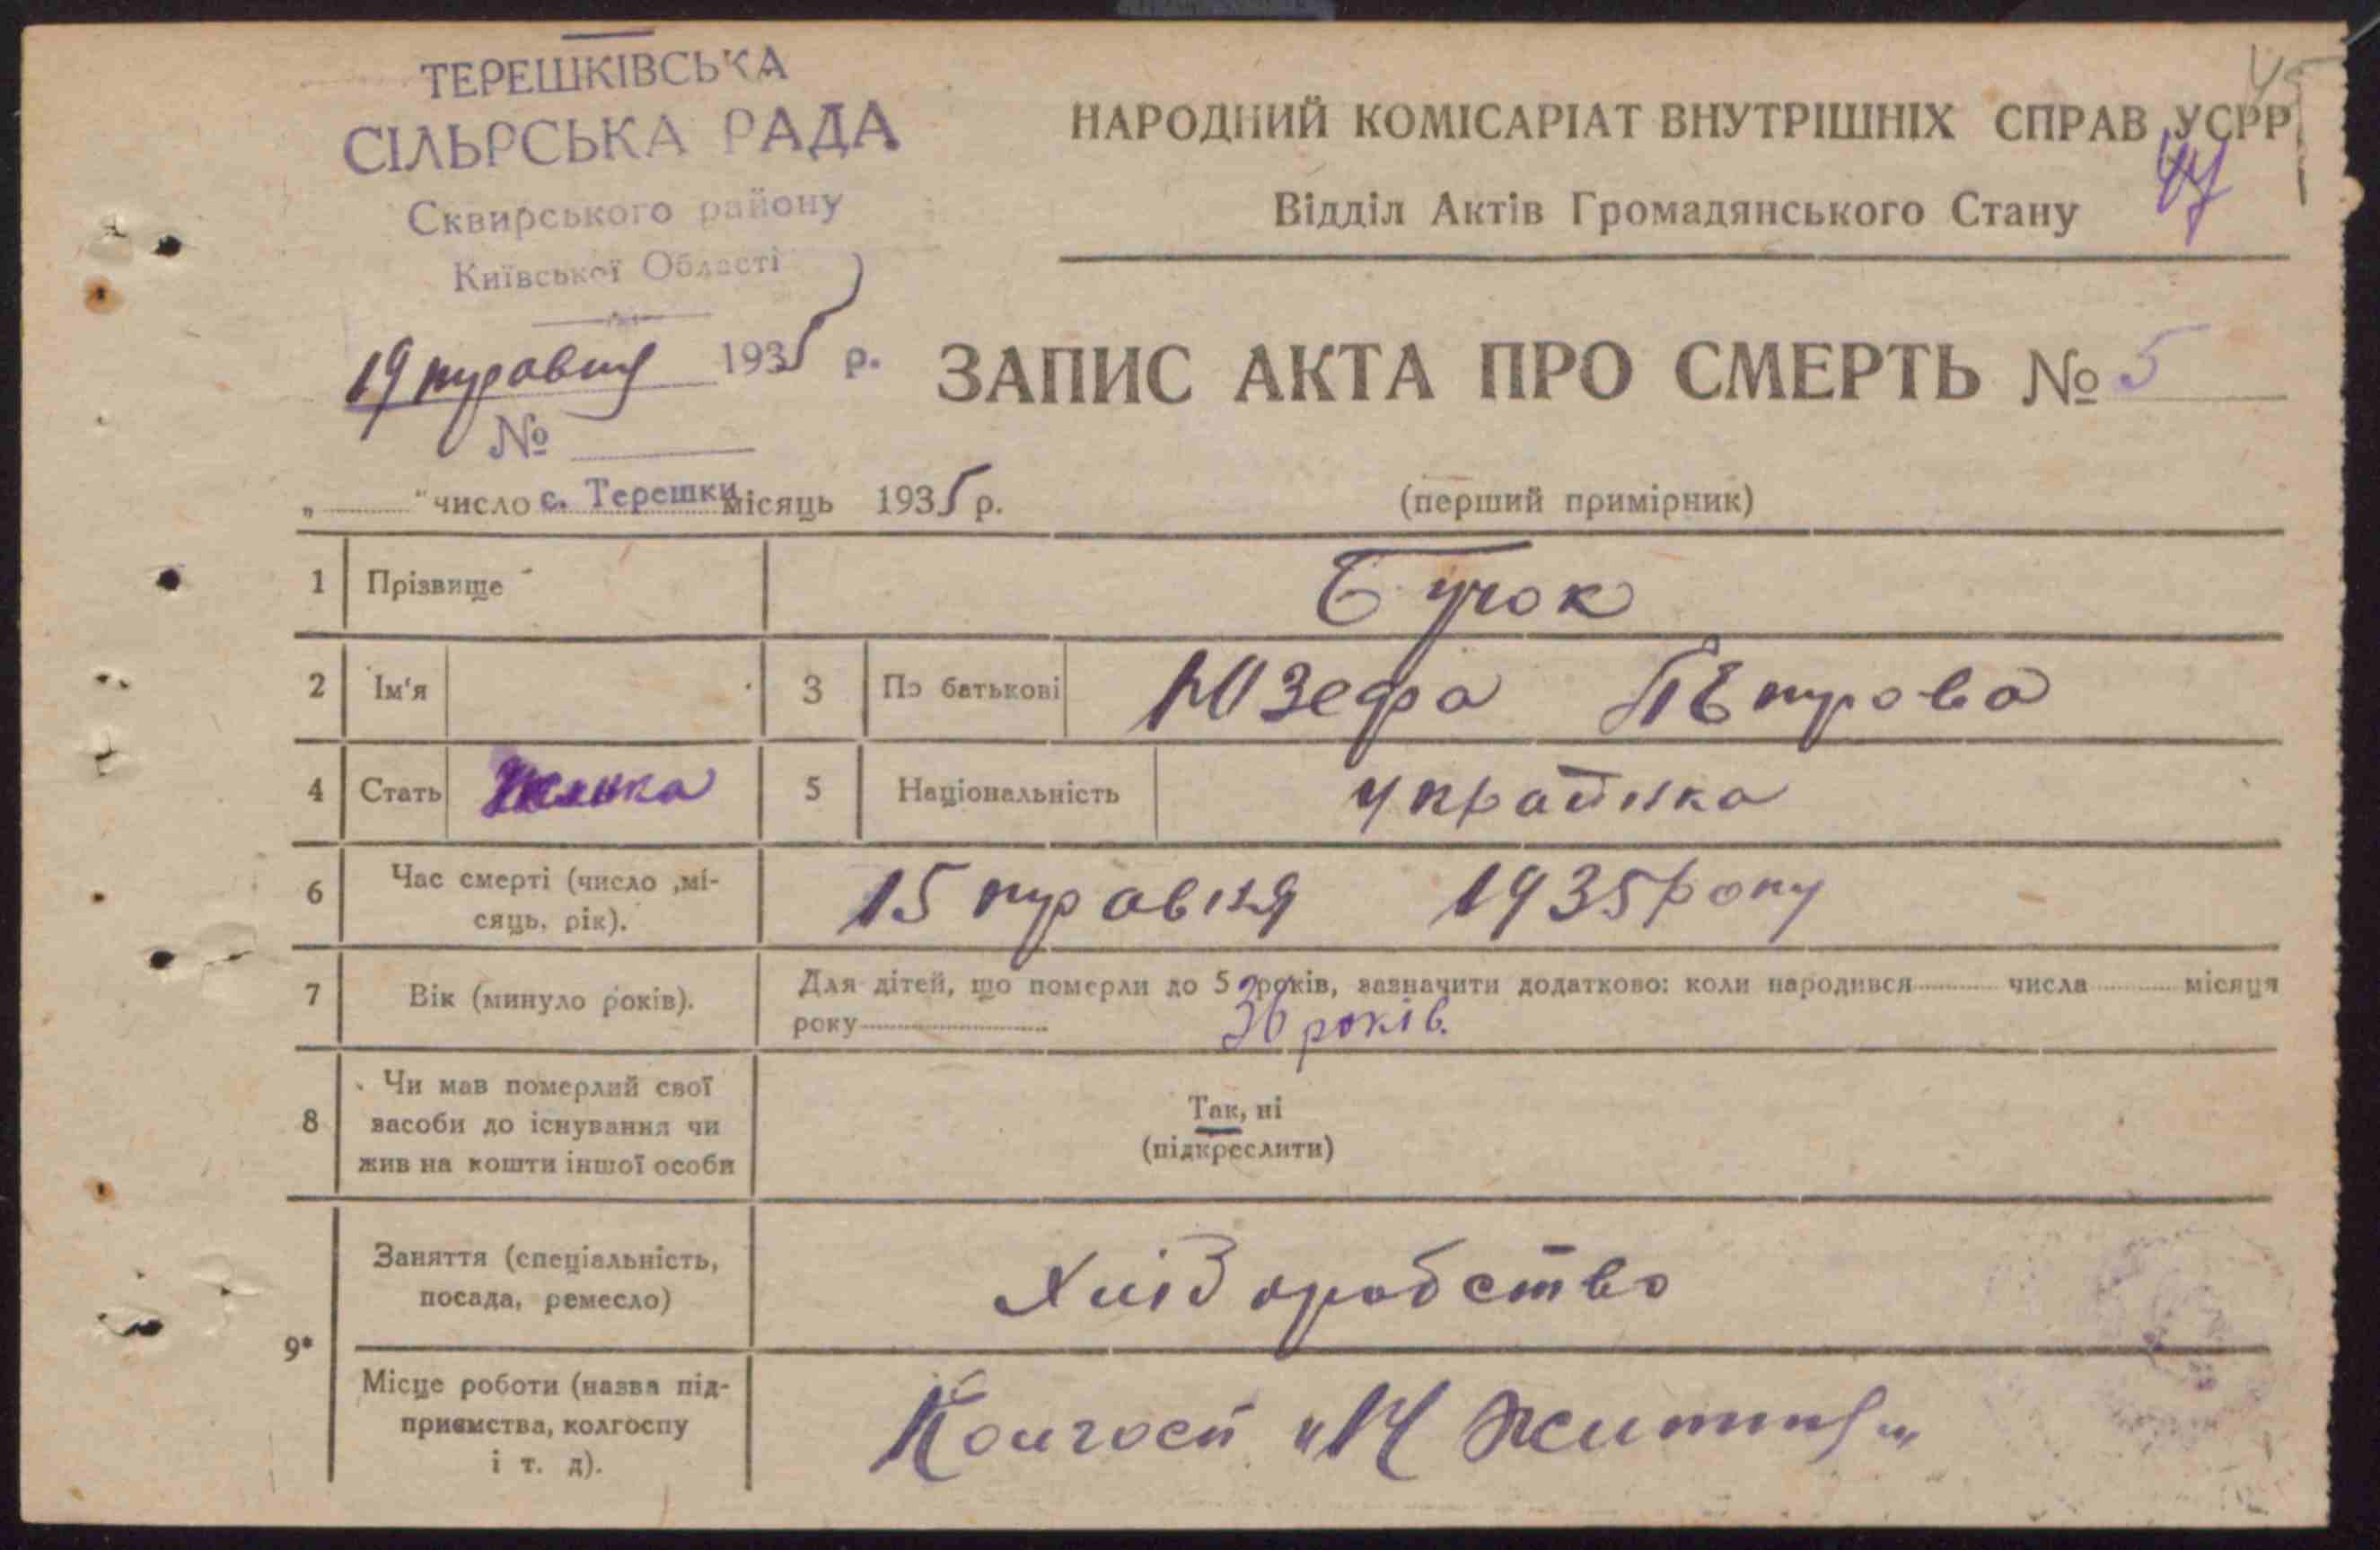 ТЕРЕШКІВСЬКА
СІЛЬРСЬКА РАДА
Сквирського району
Київської Області
19 травня 1935 р.
№
НАРОДНИЙ КОМІСАРІАТ ВНУТРІШНІХ СПРАВ УСРР
Відділ Актів Громадянського Стану
ЗАПИС АКТА ПРО СМЕРТЬ № 5
„ “ число с. Терешки місяць 1935 р.
(перший примірник)
1 Прізвище Бучок
2 Ім'я 3 По батькові Юзефа Петрова
4 Стать Жінка 5 Національність Українка
6 Час смерті (число ,мі-
сяць, рік). 15 травня 1935 року
7 Вік (минуло років). Для дітей, що померли до 5 років, зазначити додатково: коли народився числа місяця
року 36 років.
8 Чи мав померлий свої
засоби до існування чи
жив на кошти іншої особи
Так, ні
(підкреслити)
9*
Заняття (спеціальність,
посада, ремесло) Хліборобство
Місце роботи (назва під-
приємства, колгоспу
і т. д). Колгосп житття"